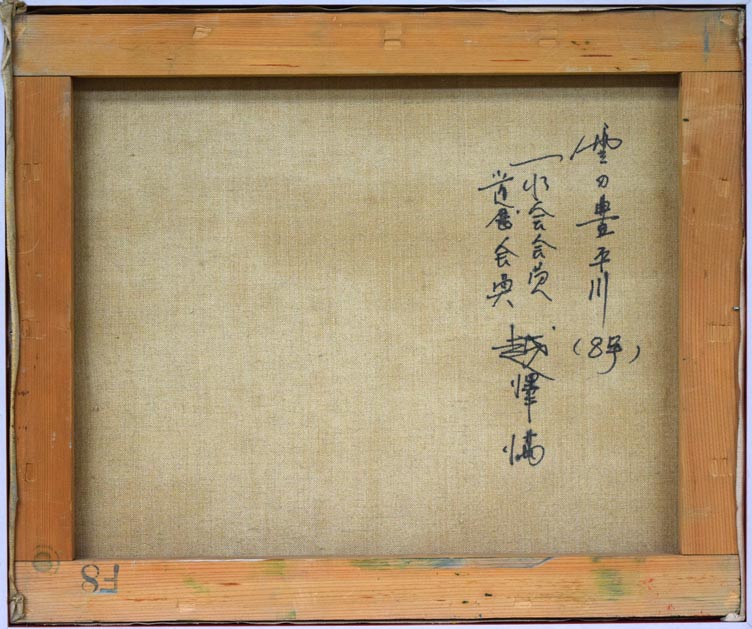 雪の豊平川
(8号)
一水会会員
道展会員
越澤満
F8